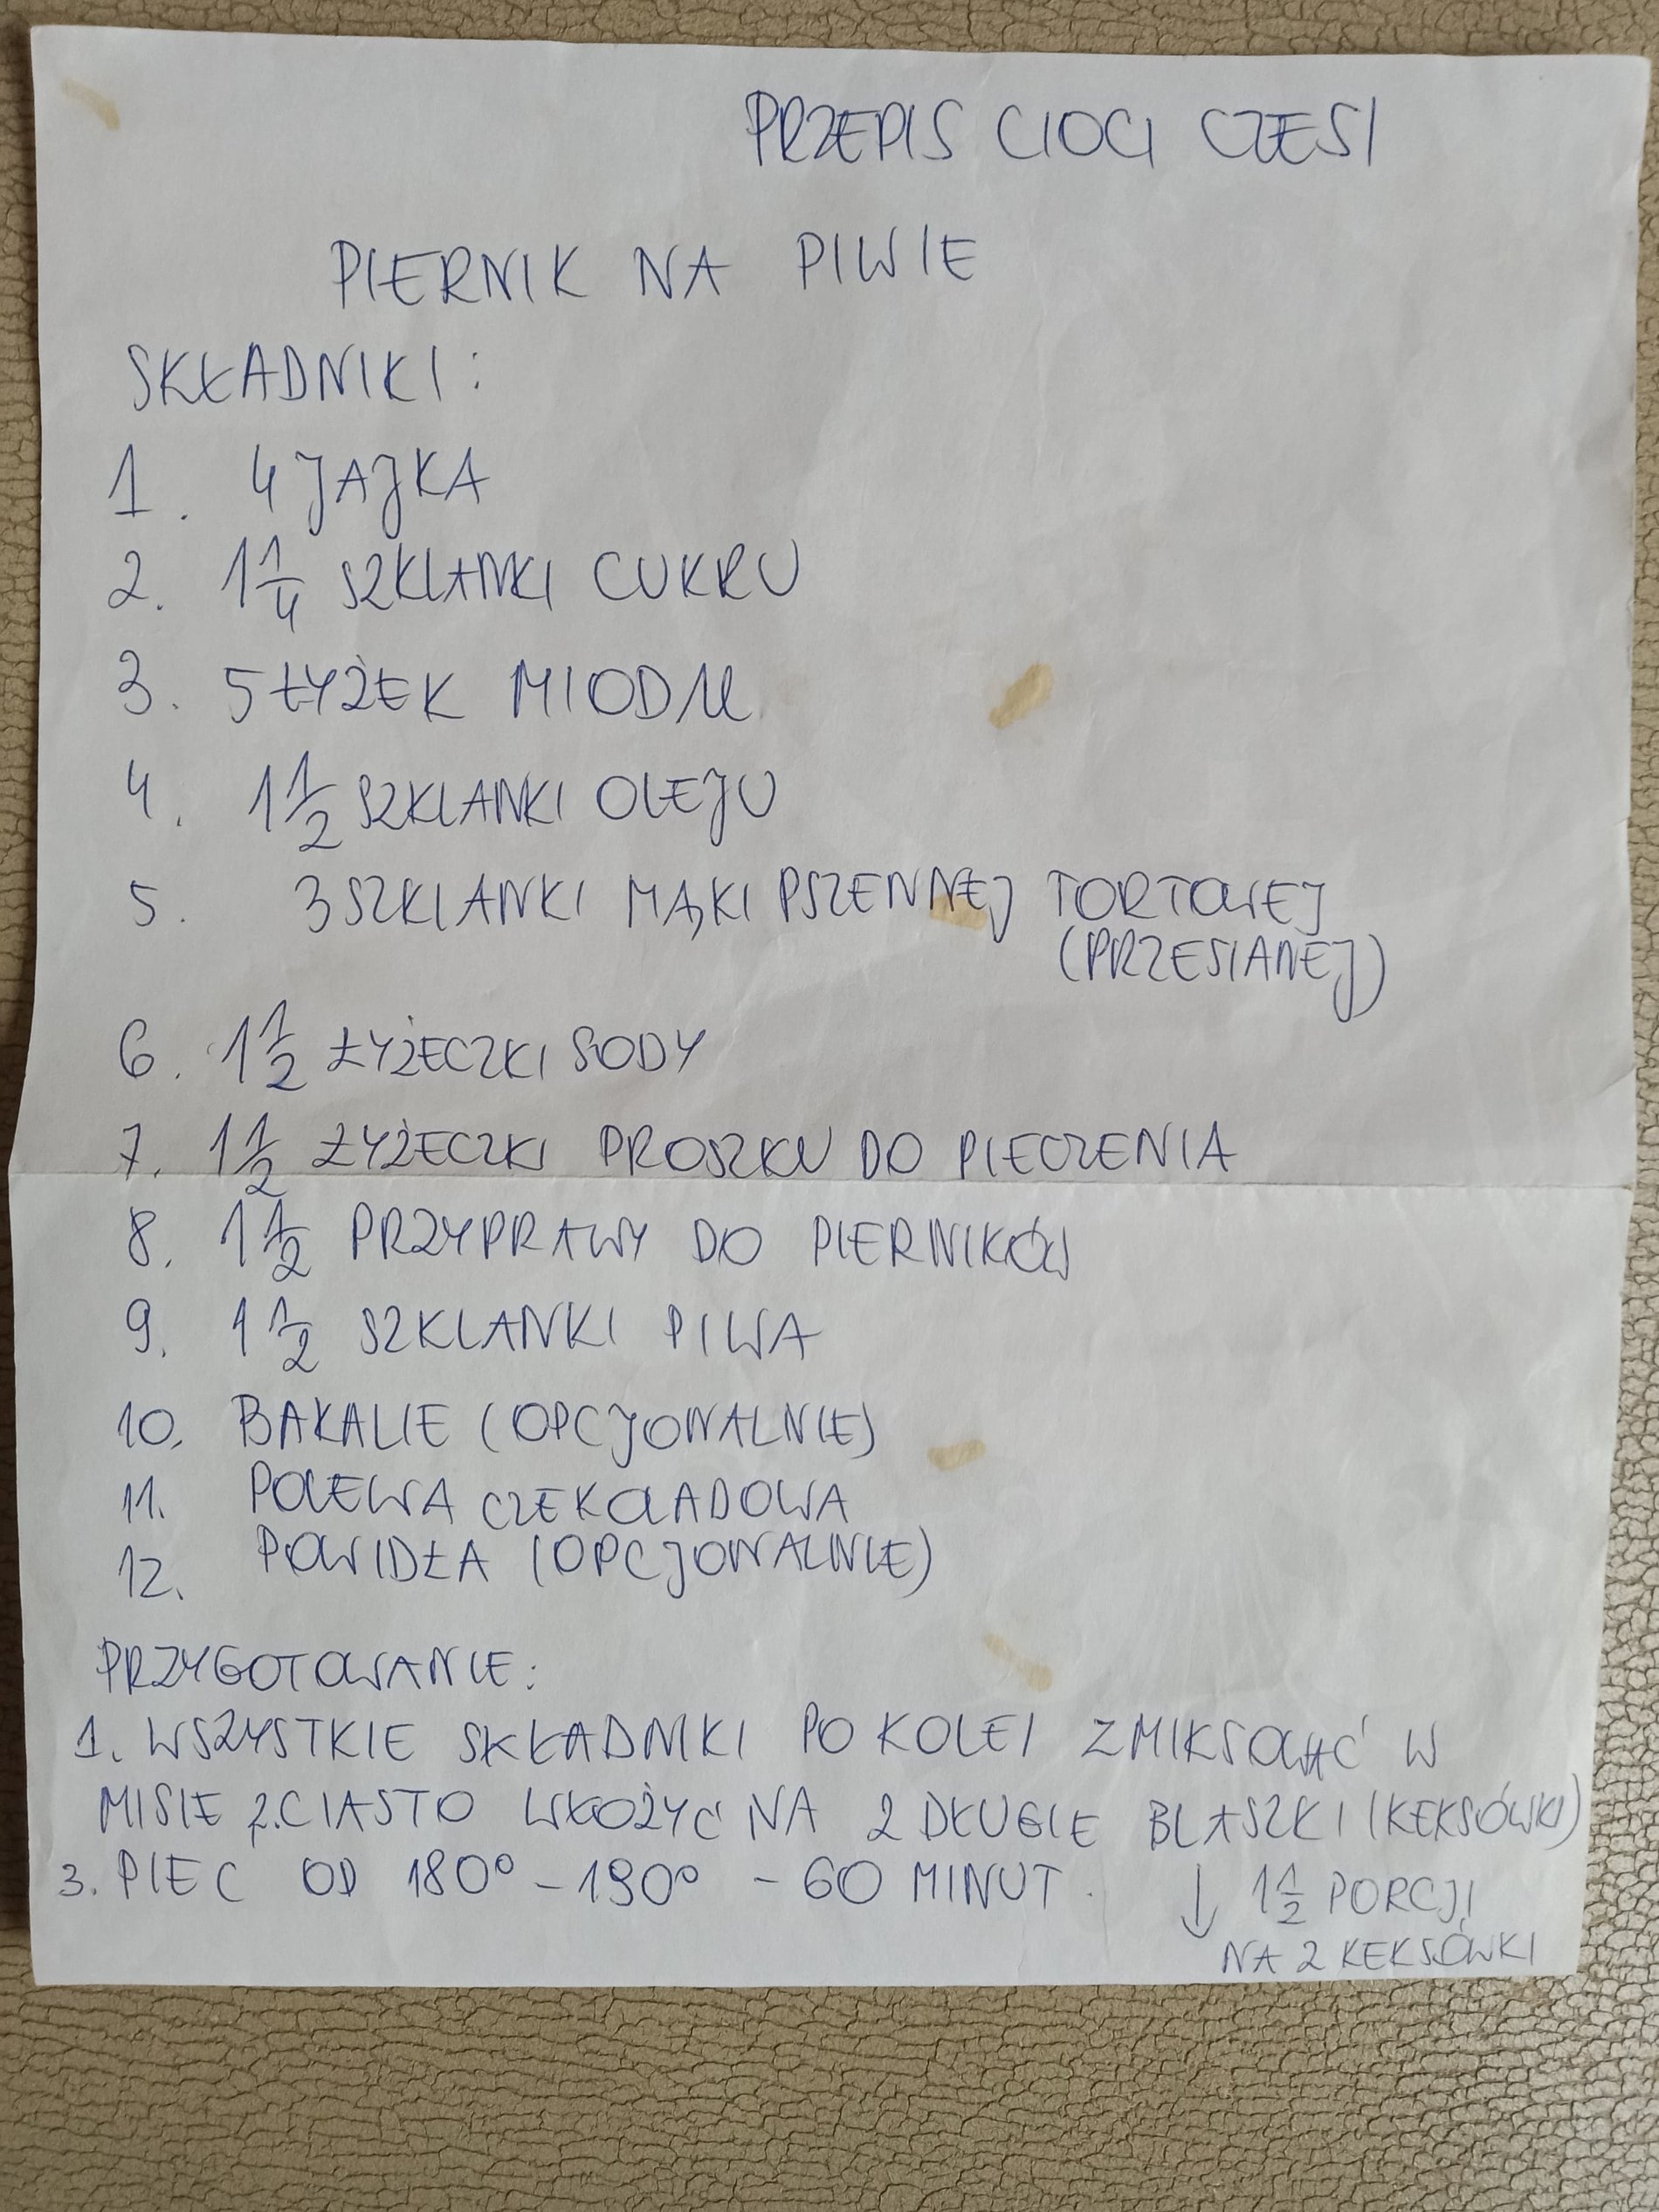 PRZEPIS CIOCI CZESI
PIERNIK NA PIWIE
SKŁADNIKI:
1. 4 JAJKA
2. 1 1/4 SZKLANKI CUKRU
3. 5 ŁYŻEK MIODU
4. 1 1/2 SZKLANKI OLEJU
5. 3 SZKLANKI MĄKI PSZENNEJ TORTOWEJ
(PRZESIANEJ)
6. 1 1/2 ŁYŻECZKI SODY
7. 1 1/2 ŁYŻECZKI PROSZKU DO PIECZENIA
8. 1 1/2 PRZYPRAWY DO PIERNIKÓW
9. 1 1/2 SZKLANKI PIWA
10. BAKALIE (OPCJONALNIE)
11. POLEWA CZEKOLADOWA
12. POWIDŁA (OPCJONALNIE)
PRZYGOTOWANIE:
1. WSZYSTKIE SKŁADNIKI PO KOLEI ZMIKSOWAĆ W
MISIE 2. CIASTO WŁOŻYĆ NA 2 DŁUGIE BLASZKI (KEKSÓWKI)
3. PIEC OD 180° - 190° - 60 MINUT. ↓ 1 1/2 PORCJI
NA 2 KEKSÓWKI